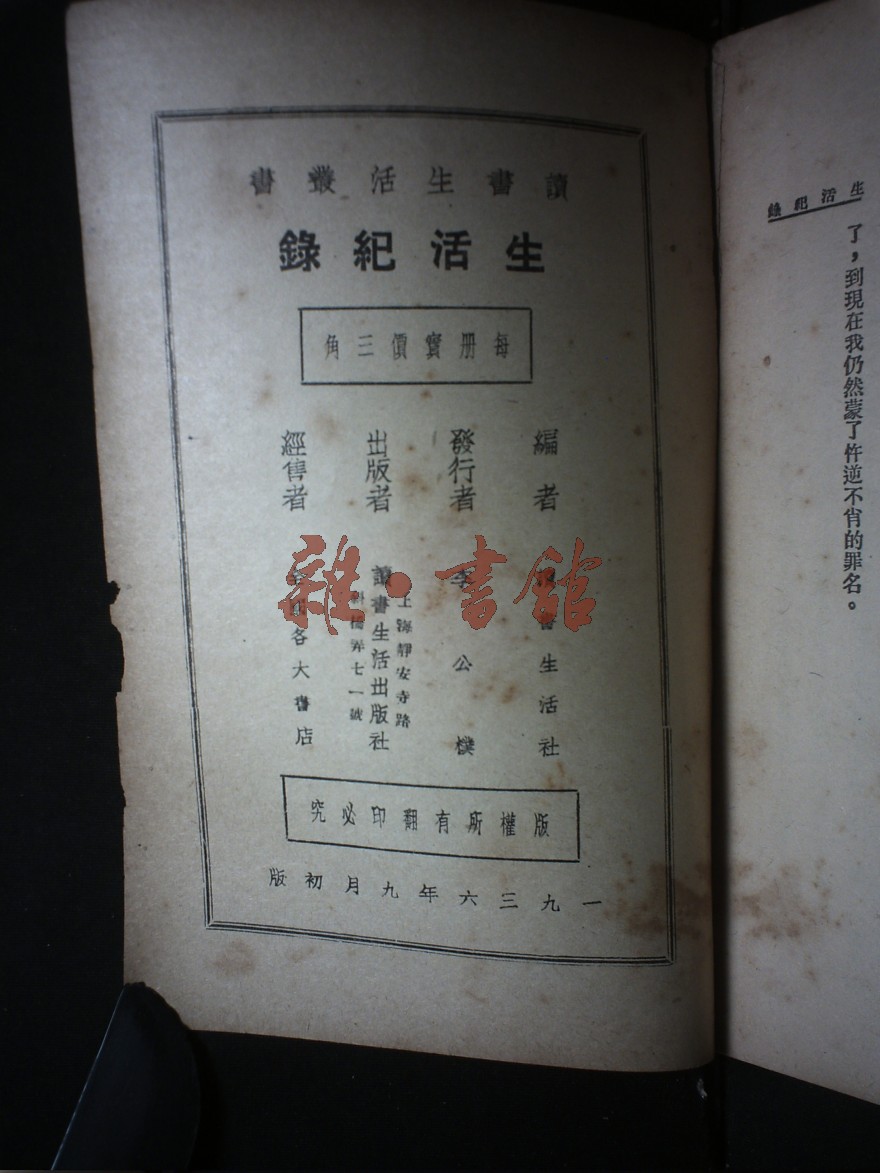 生活紀錄
了，到現在我仍然蒙了忤逆不肖的罪名。
讀書生活叢書
生活紀錄
每册實價三角
編者 書生活社
發行者 李公樸
出版者 讀書生活出版社
上海靜安寺路
斜橋弄七一號
經售者 全國各大書店
版權所有翻印必究
一九三六年九月初版
雜·書館